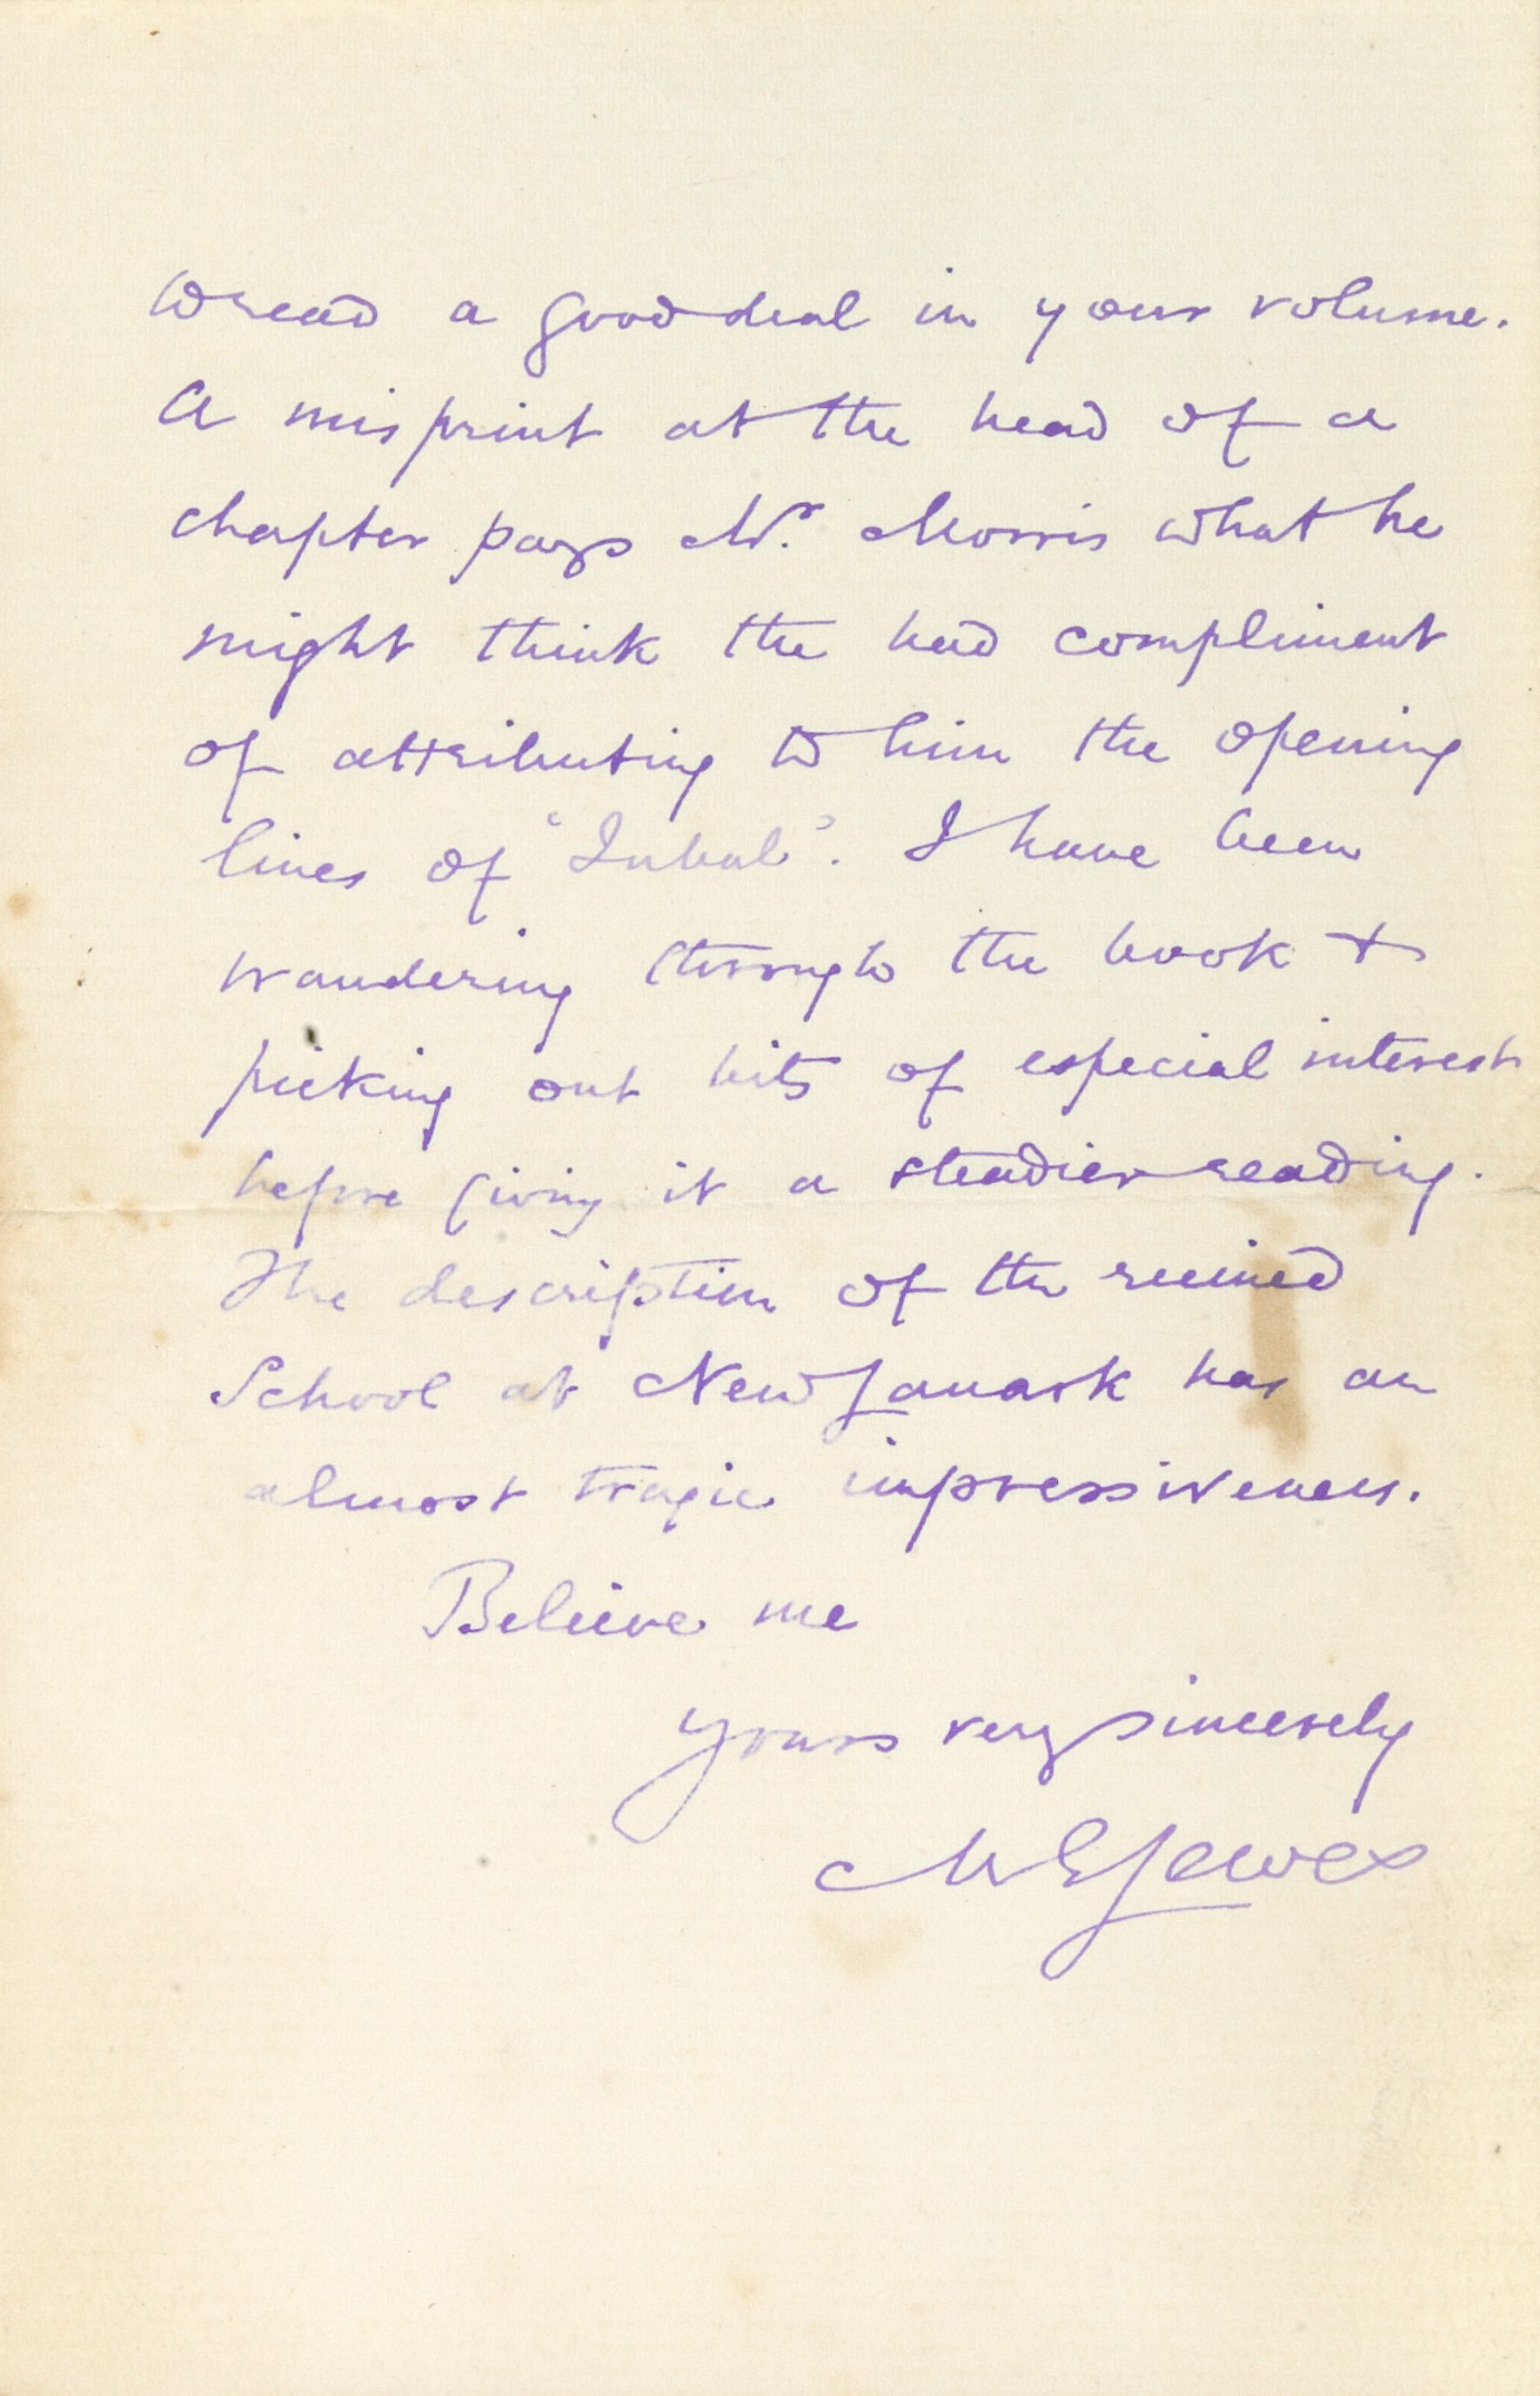 to read a good deal in your volume.
A misprint at the head of a
chapter pays Mr. Morris what he
might think the bad compliment
of attributing to him the opening
lines of "Jubal". I have been
wandering through the book &
picking out bits of especial interest
before giving it a steadier reading.
The description of the ruined
School at New Lanark has an
almost tragic impressiveness.
Believe me
Yours very sincerely
M E Lewes